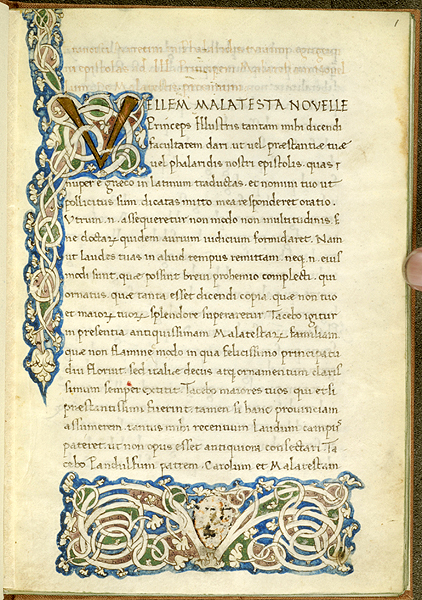 1
VELLEM MALATESTA NOVELLE
Princeps Illustris tantam mihi dicendi
facultatem dari. ut vel prestantiæ tuæ
vel phalaridis nostri epistolis. quas
nuper e græco in latinum traductas. et nomini tuo ut
pollicitus sum dicatas mitto mea responderet oratio.
Utrum .n. assequeretur non modo non multitudinis. s
ne doctorum quidem aurium iudicium formidaret. Nam
ut laudes tuas in aliud tempus remittam. neq. n. eius
modi sunt. quæ possint brevi prohemio complecti. qui
ornatus. quæ tanta esset dicendi copia. quæ non tuo
et maiorum tuorum splendore superaretur. Tacebo igitur
in presentia antiquissimam Malatestarum familiam
quæ non flamine modo in qua felicissimo principatu
diu floruit. sed italiæ decus atq. ornamentum claris
simum semper extitit. Tacebo maiores tuos. qui et si
prestantissimi fuerint. tamen si hanc provinciam
assumerem. tantus mihi recentium laudum campus
pateret. ut non opus esset antiquiora consectari. Ta
cebo Pandulfum patrem. Carolum et Malatestam